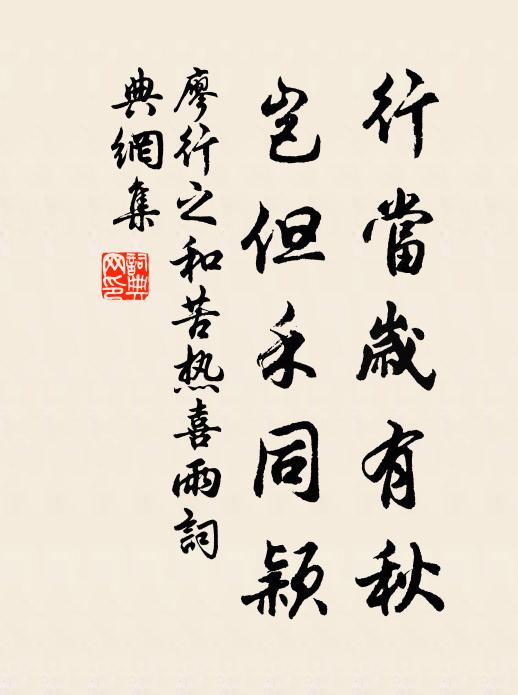 行當歲有秋
豈但禾同穎
廖行之和苦热喜雨詞
典網集
詞典网印